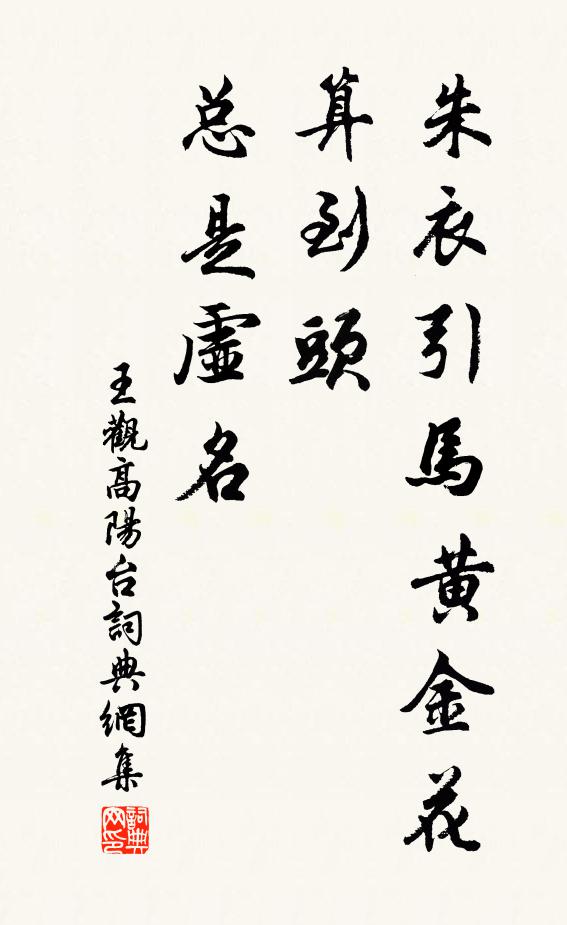 朱衣引馬黄金花
算到頭
总是虛名
王觀高陽台詞典網集
詞典网印